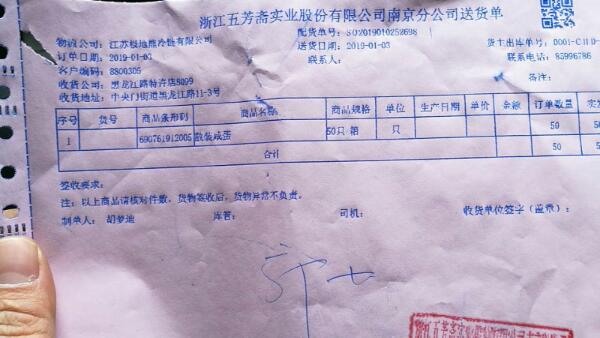 浙江五芳斋实业股份有限公司南京分公司送货单
物流公司：江苏极地熊冷链有限公司 配货单号：SO2019010252698 货主出库单号：0001-CJ1D-
订单日期：2019-01-03 送货日期：2019-01-03 联系电话：85996786
客户编码：8800305 联系人： 备注：
收货公司：黑龙江路特许店8099
收货地址：中央门街道黑龙江路11-3号
序号 货号 商品条形码 商品名称 商品规格 单位 生产日期 单价 余额 订单数量 实发
1 690761912005 散装咸蛋 50只/箱 只 50 50
合计 50 5
签收要求：
注：以上商品请核对件数，货物签收后，货物异常不负责。
制单人：胡梦迪 库管： 司机： 收货单位签字（盖章）：